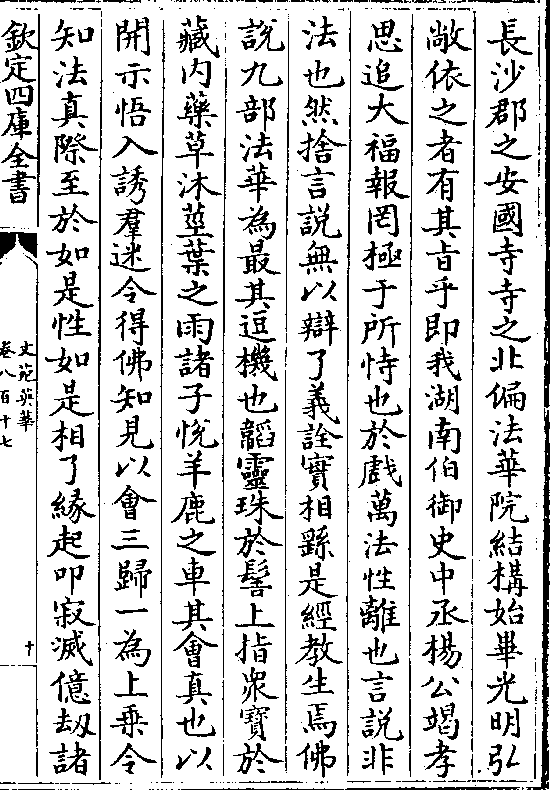 長沙郡之安國寺寺之北偏法華院結構始畢光明弘
敞依之者有其旨乎即我湖南伯御史中丞楊公竭孝
思追大福報罔極于所恃也於戲萬法性離也言說非
法也然捨言說無以辯了義詮實相繇是經教生焉佛
說九部法華為最其逗機也韜靈珠於髻上指衆寶於
藏内藥草沐莖葉之雨諸子悅羊鹿之車其會真也以
開示悟入誘羣迷令得佛知見以會三歸一為上乗令
知法真際至於如是性如是相了緣起叩寂滅億刼諸
欽定四庫全書
文苑英華
卷八百十七
十